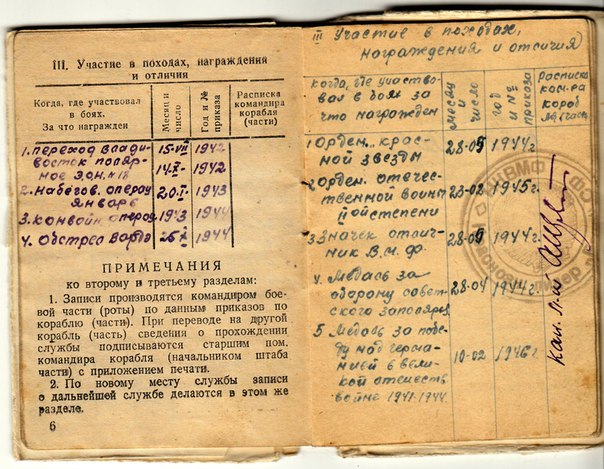 III. Участие в походах, награждения
и отличия
Когда, где участвовал
в боях.
За что награжден
Месяц и
число
Год и №
приказа
Расписка
командира
корабля
(части)
1. переход Влади- 15-VII 1942
восток поляр-
ное Э.О.Н. №18 14-X- 1942
2. набегов. операц 20-I- 1943
Январь
3. конвойн операц 1943 1944
4. Обстрел Вардэ 26-X 1944
ПРИМЕЧАНИЯ
ко второму и третьему разделам:
1. Записи производятся командиром бое-
вой части (роты) по данным приказов по
кораблю (части). При переводе на другой
корабль (часть) сведения о прохождении
службы подписываются старшим пом.
командира корабля (начальником штаба
части) с приложением печати.
2. По новому месту службы записи
о дальнейшей службе делаются в этом же
разделе.
6
III Участие в походах,
награждения и отличия
когда, где участво-
вал в боях за
что награжден
месяц
число
год
и №
приказа
Расписка
ком-ра
кораб
1 Орден. крас- 28-09 1944г.
ной звезды
2 Орден. отечес- 23-02 1945г.
твенной войны
II ой степени
3. Значек отлич- 28-09 1944г.
ник В.м.ф.
4. Медаль за 28-04 1944г.
оборону совет-
ского заполярья
5. Медаль за побе-
ду над герма- 10-02 1946г.
нией в вели-
кой отечеств
войне 1941-1944
НКВМФ
кап. л-т